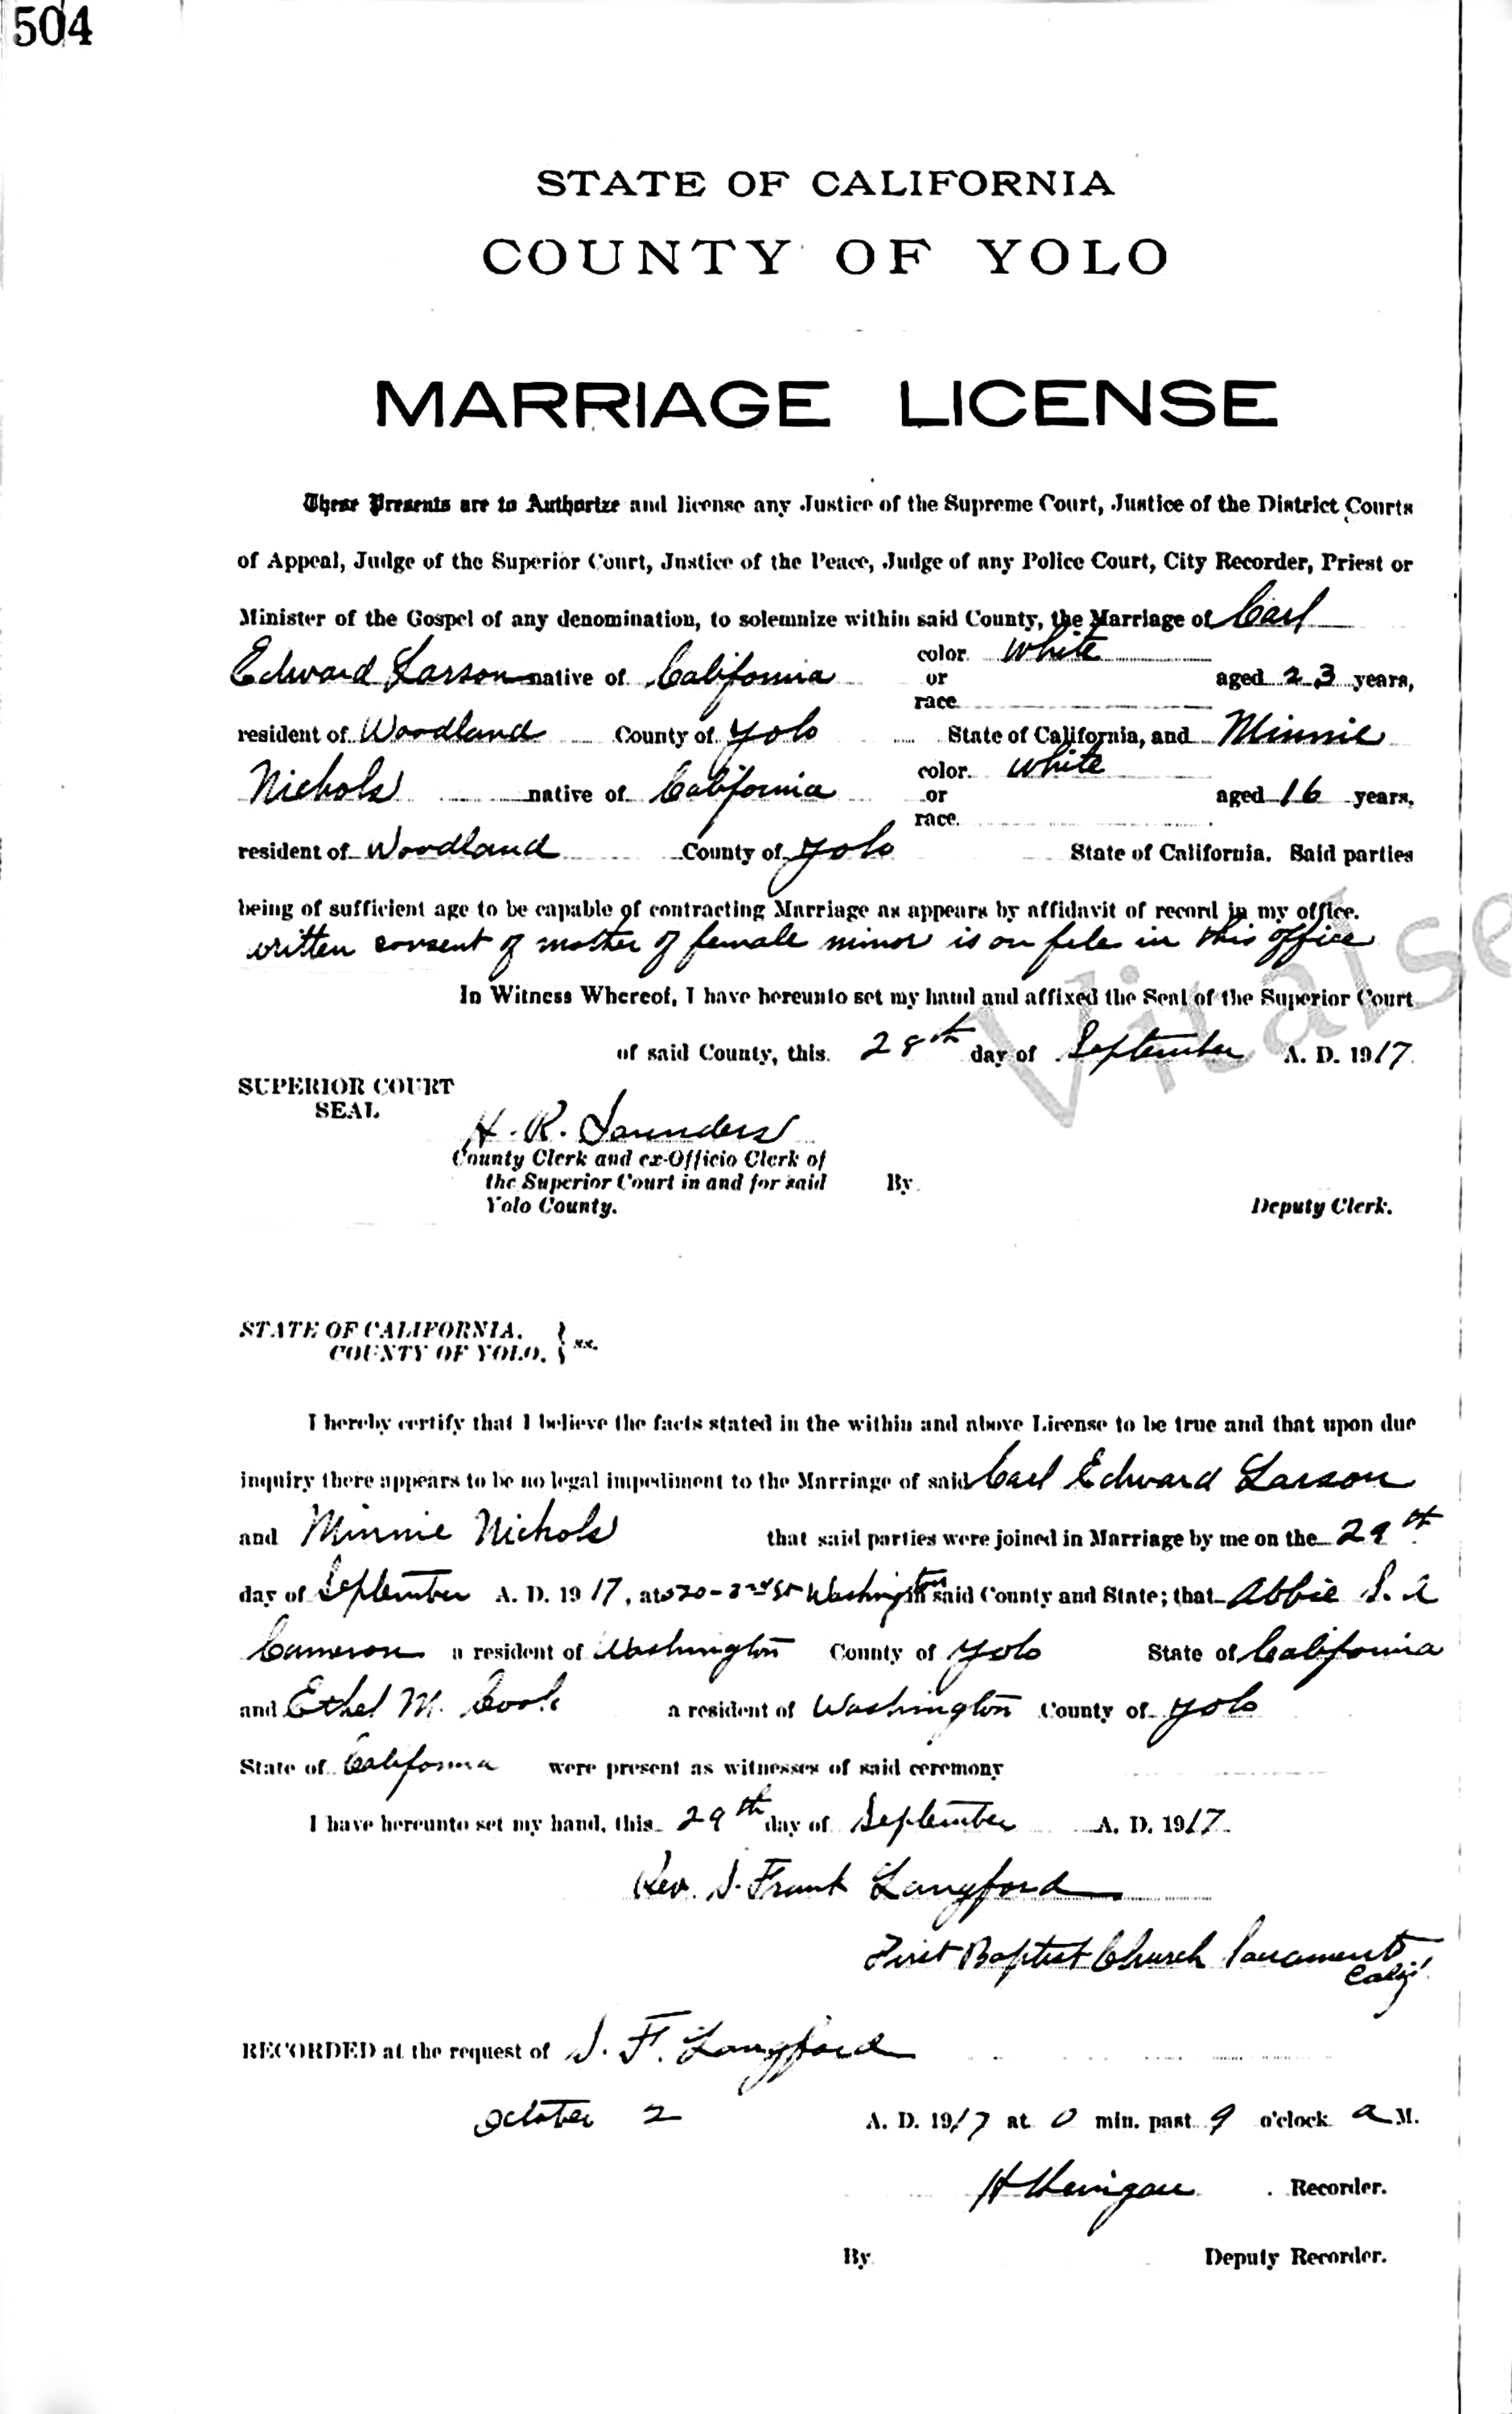 504
STATE OF CALIFORNIA
COUNTY OF YOLO
MARRIAGE LICENSE
These Presents are to Authorize and license any Justice of the Supreme Court, Justice of the District Courts
of Appeal, Judge of the Superior Court, Justice of the Peace, Judge of any Police Court, City Recorder, Priest or
Minister of the Gospel of any denomination, to solemnize within said County, the Marriage of Carl
Edward Larson native of California color or race White aged 23 years,
resident of Woodland County of Yolo State of California, and Minnie
Nichols native of California color or race White aged 16 years,
resident of Woodland County of Yolo State of California. Said parties
being of sufficient age to be capable of contracting Marriage as appears by affidavit of record in my office.
written consent of mother of female minor is on file in this office
In Witness Whereof, I have hereunto set my hand and affixed the Seal of the Superior Court
of said County, this 28th day of September A. D. 1917
SUPERIOR COURT
SEAL
H. R. Saunders
County Clerk and ex-Officio Clerk of
the Superior Court in and for said
Yolo County.
By
Deputy Clerk.
STATE OF CALIFORNIA,
COUNTY OF YOLO. } ss.
I hereby certify that I believe the facts stated in the within and above License to be true and that upon due
inquiry there appears to be no legal impediment to the Marriage of said Carl Edward Larson
and Minnie Nichols that said parties were joined in Marriage by me on the 29th
day of September A. D. 1917, at 2nd St Washington said County and State; that Abbie
Cameron a resident of Washington County of Yolo State of California
and Ethel M. Cook a resident of Washington County of Yolo
State of California were present as witnesses of said ceremony
I have hereunto set my hand, this 29th day of September A. D. 1917
Rev. S. Frank Langford
First Baptist Church Sacramento
Calif
RECORDED at the request of S. F. Langford
October 2 A. D. 1917 at 0 min. past 9 o'clock a M.
Recorder.
By Deputy Recorder.